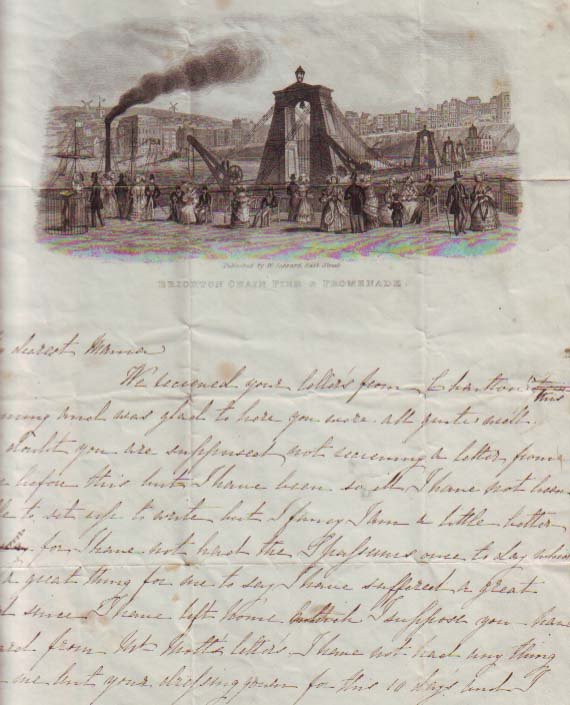 BRIGHTON CHAIN PIER & PROMENADE.
dearest Mama
We received your letters from Charlton this
and was glad to here you were all quite well.
doubt you are supprised not receiving a letter from
before this but I have been so ill I have not been
to set up to write but I fancy I am a little better
for I have not had the Spassums once to day which
a great thing for me to say I have suffered a great
since I have left home I suppose you have
from Mr Motts letters. I have not had any thing
me but your dressing gown for this 10 days and I